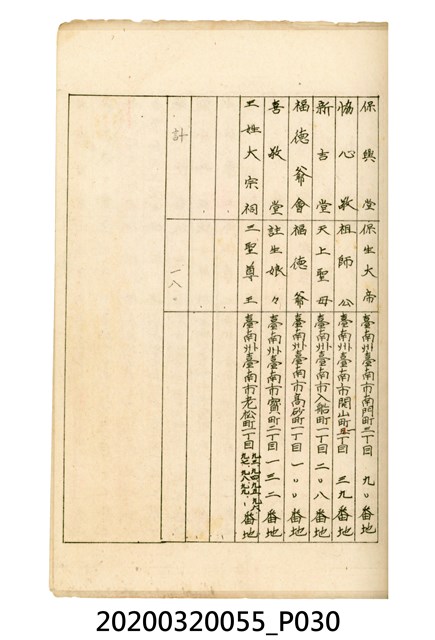 保興堂 保生大帝 臺南州臺南市南門町三丁目 九〇番地
協心敬 祖師公 臺南州臺南市開山町丁目 三九番地
新吉堂 天上聖母 臺南州臺南市入船町一丁目 二〇八番地
福德爺會 福德爺 臺南州臺南市高砂町一丁目 一〇〇番地
善敬堂 註生娘々 臺南州臺南市寶町二丁目 一三二番地
王姓大宗祠 三聖尊王 臺南州臺南市老松町二丁目 番地
計 一八〇
20200320055_P030